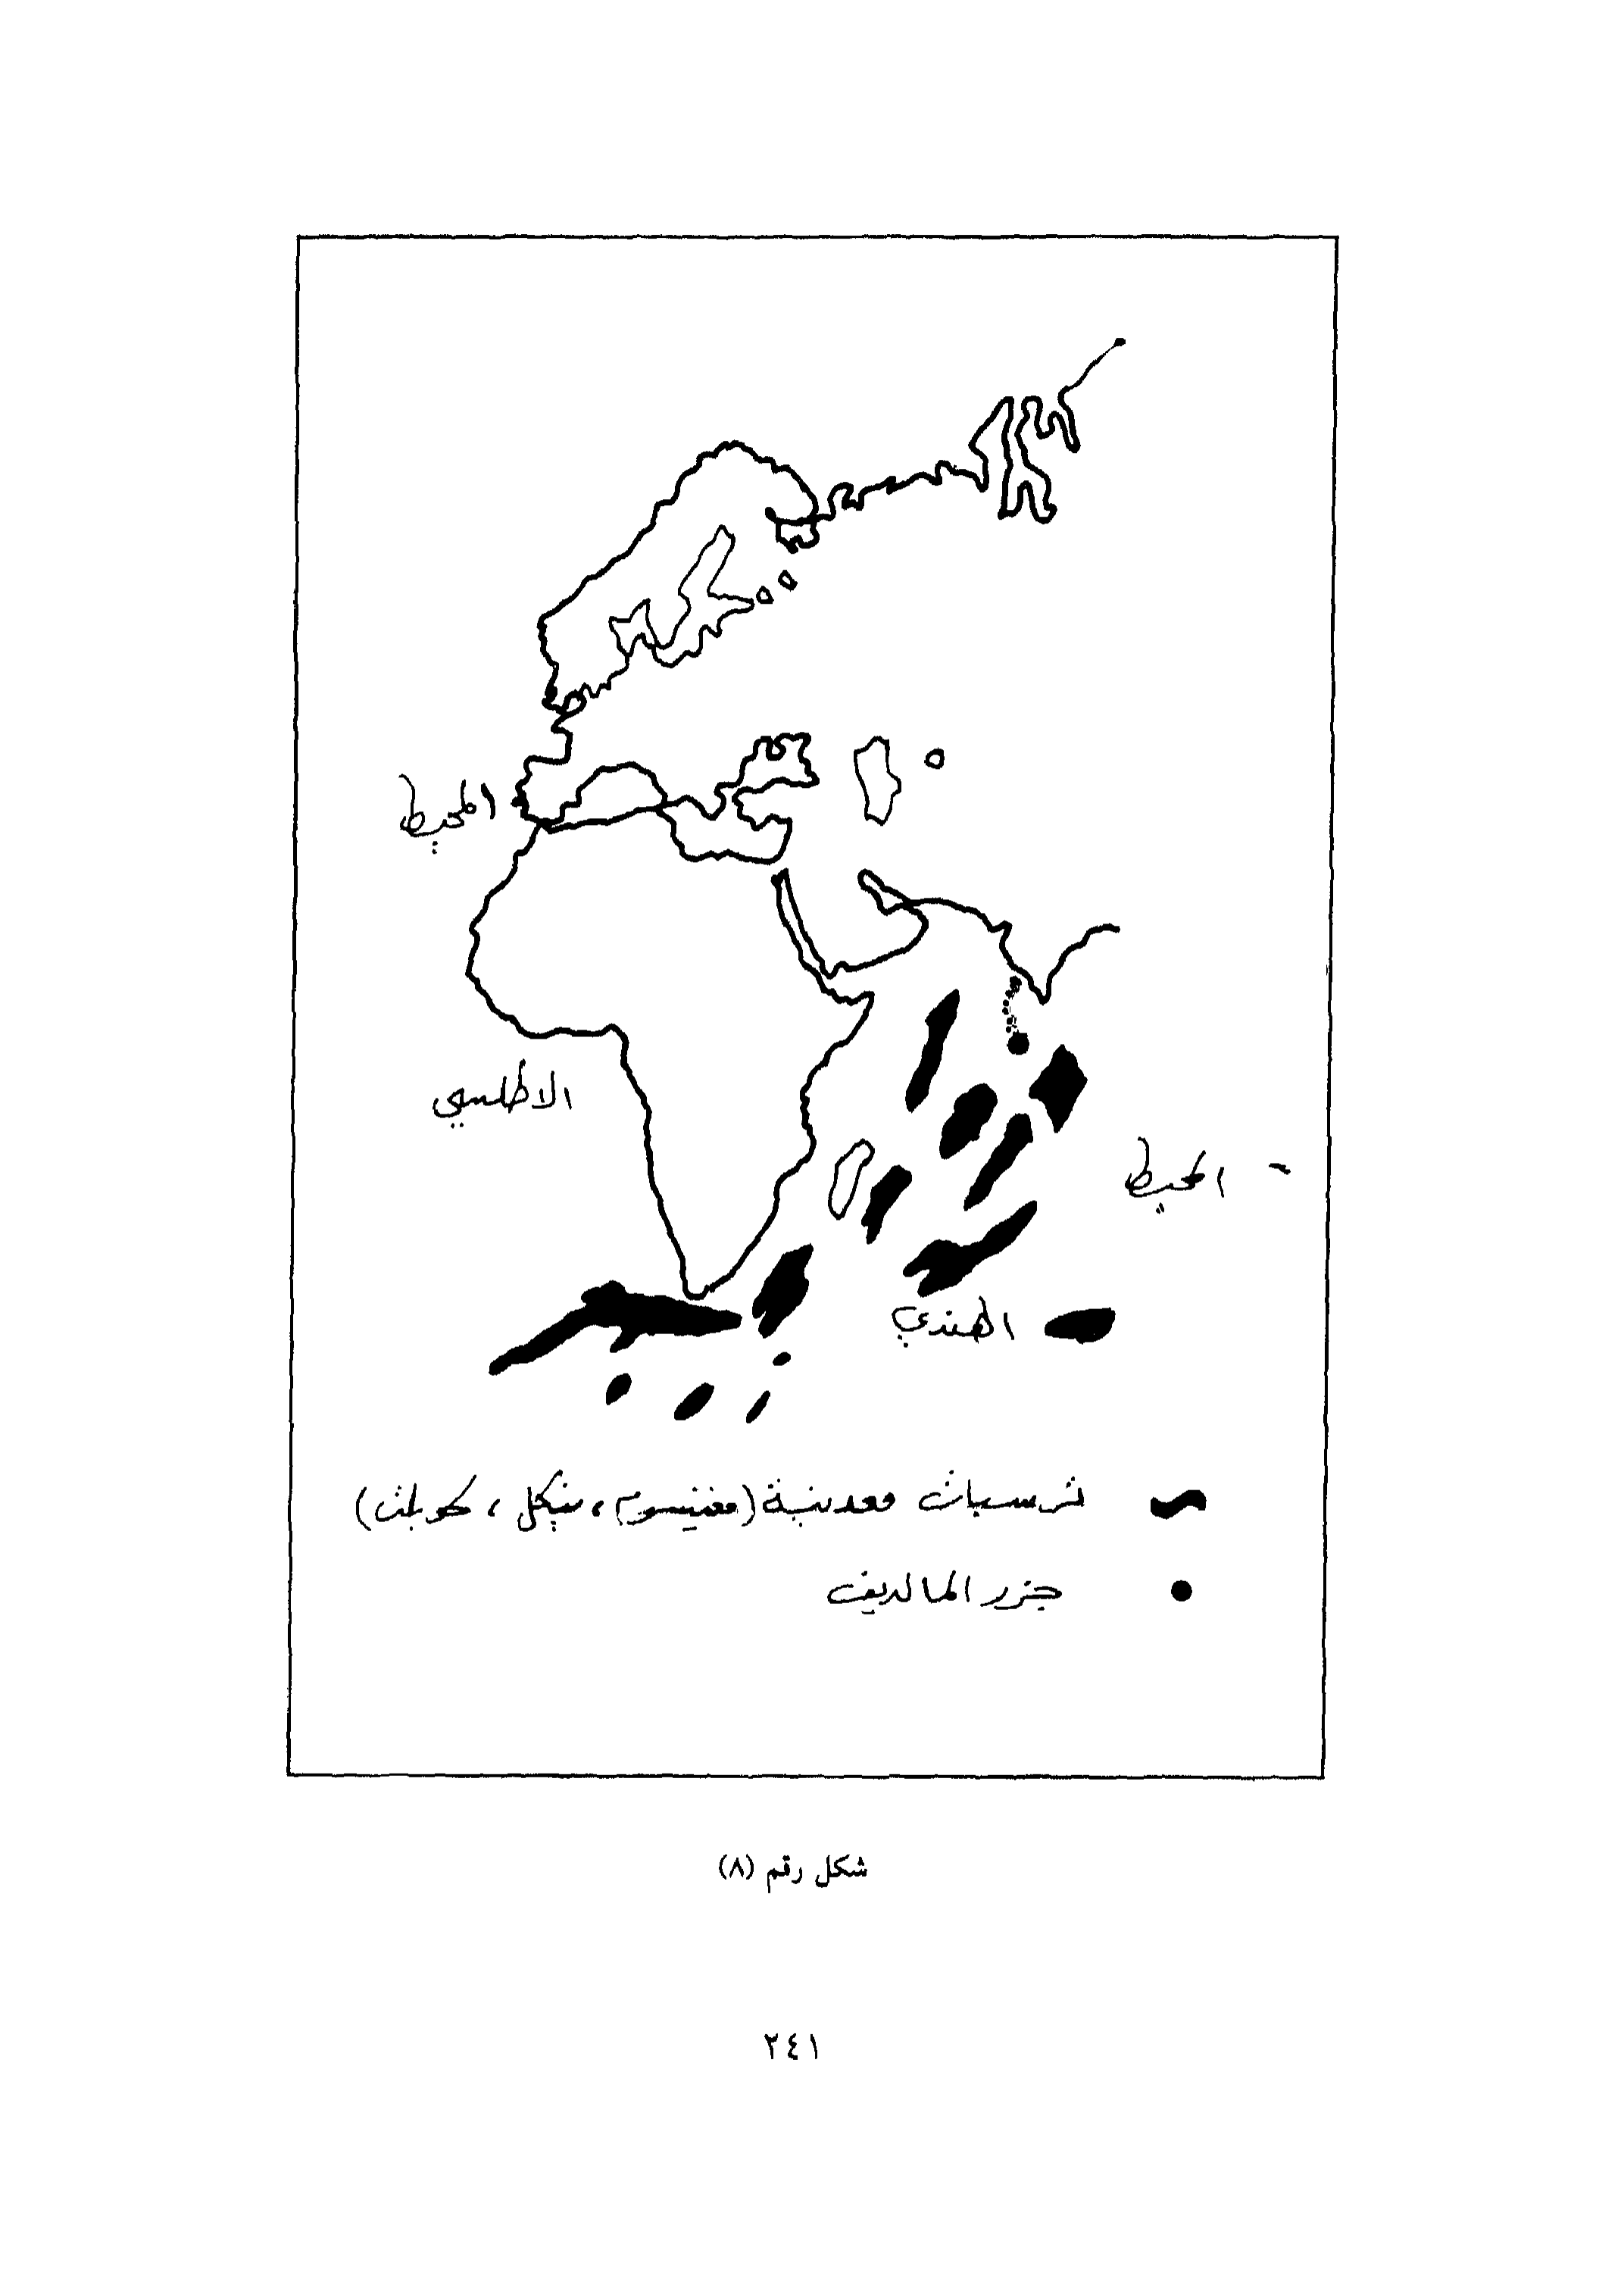 المحيط
الاطلسي
المحيط
الهندي
ترسبات معدنية (مغنيسوم، نيكل، كوبلت)
جزر المالديف
شكل رقم (٨)
٢٤١